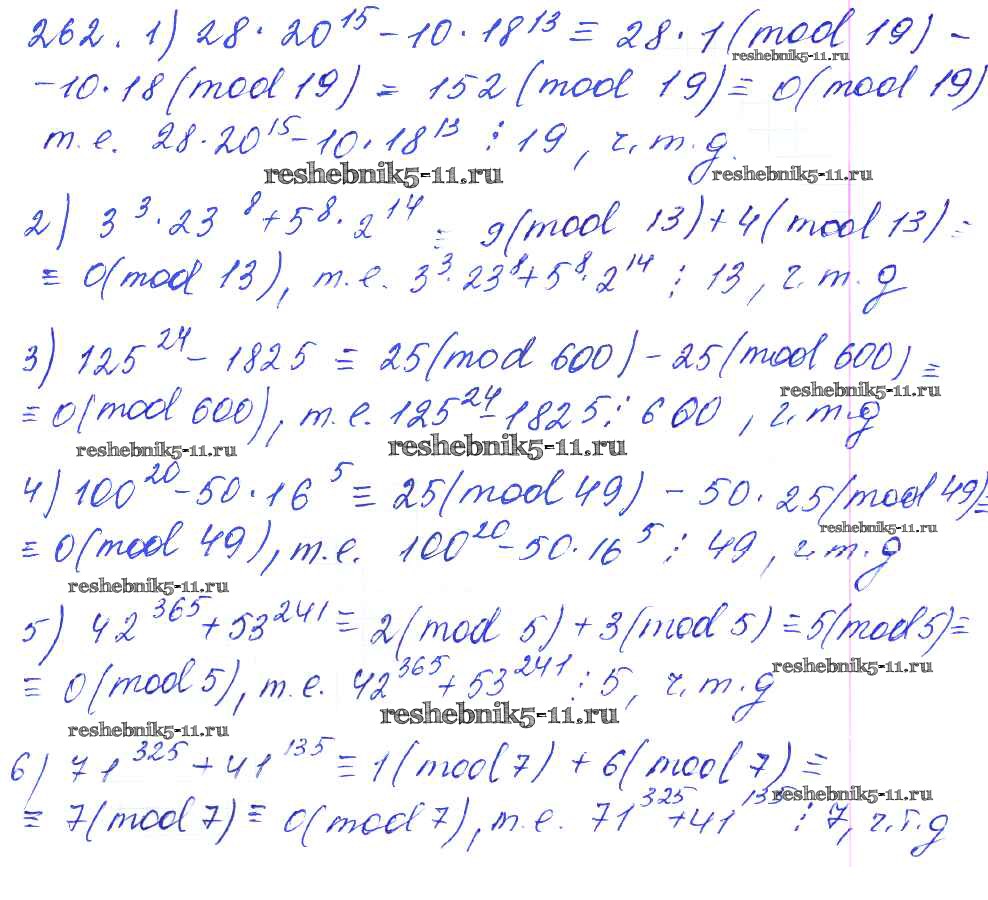 262. 1) 28·20¹⁵ − 10·18¹³ ≡ 28·1 (mod 19) −
reshebnik5-11.ru
−10·18 (mod 19) = 152 (mod 19) ≡ 0 (mod 19)
т.е. 28·20¹⁵ − 10·18¹³ ⋮ 19, ч.т.д.
reshebnik5-11.ru
reshebnik5-11.ru
2) 3³·23⁸ + 5⁸·2¹⁴ ≡ 9 (mod 13) + 4 (mod 13) ≡
≡ 0 (mod 13), т.е. 3³·23⁸ + 5⁸·2¹⁴ ⋮ 13, ч.т.д
3) 125²⁴ − 1825 ≡ 25 (mod 600) − 25 (mod 600) ≡
reshebnik5-11.ru
≡ 0 (mod 600), т.е. 125²⁴ − 1825 ⋮ 600, ч.т.д
reshebnik5-11.ru
reshebnik5-11.ru
4) 100²⁰ − 50·16⁵ ≡ 25 (mod 49) − 50·25 (mod 49) ≡
reshebnik5-11.ru
≡ 0 (mod 49), т.е. 100²⁰ − 50·16⁵ ⋮ 49, ч.т.д
reshebnik5-11.ru
5) 42³⁶⁵ + 53²⁴¹ ≡ 2 (mod 5) + 3 (mod 5) ≡ 5 (mod 5) ≡
reshebnik5-11.ru
≡ 0 (mod 5), т.е. 42³⁶⁵ + 53²⁴¹ ⋮ 5, ч.т.д
reshebnik5-11.ru
reshebnik5-11.ru
6) 71³²⁵ + 41¹³⁵ ≡ 1 (mod 7) + 6 (mod 7) ≡
reshebnik5-11.ru
≡ 7 (mod 7) ≡ 0 (mod 7), т.е. 71³²⁵ + 41¹³⁵ ⋮ 7, ч.т.д